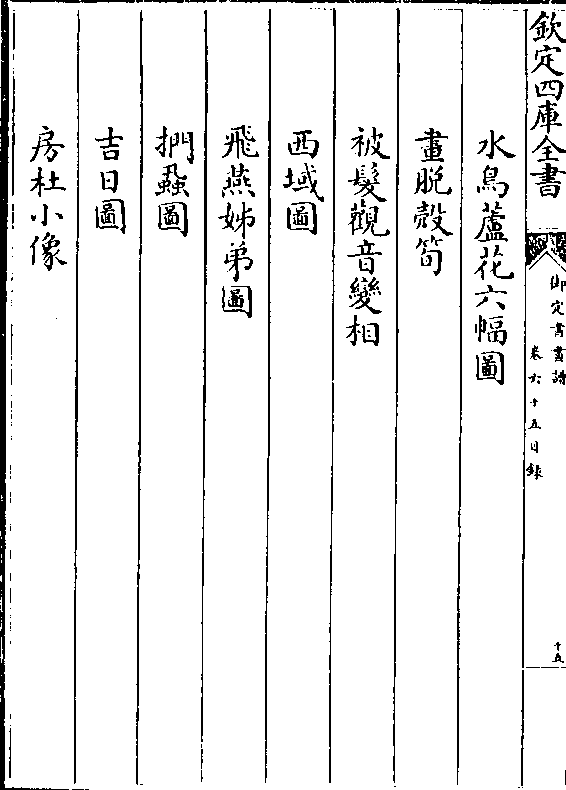 欽定四庫全書
御定書畫譜
卷六十五目錄
十五
水鳥蘆花六幅圖
畫脫殻筍
被髮觀音變相
西域圖
飛燕姊弟圖
捫蝨圖
吉日圖
房杜小像